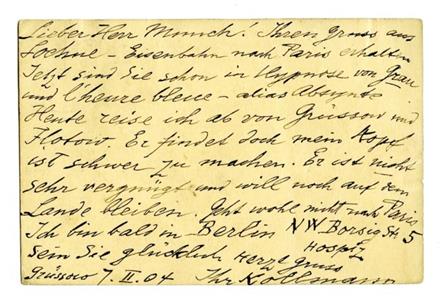 Lieber Herr Munch! Ihren Gruss aus
– Eisenbahn nach Paris erhalten
Jetzt sind Sie schon in Hypnose von Grau
und l'heure bleue – alias Absynt
Heute reise ich ab von Grüssow und
Flotow. Er findet doch mein Kopf
ist schwer zu machen. Er ist nicht
sehr vergnügt und will noch auf dem
Lande bleiben. Geht wohl nicht nach Paris
Ich bin bald in Berlin NW. Borsig Str. 5
Hospiz
Sein Sie glücklich Herzl gruss
Grüssow 7. II. 04 Ihr Kollmann